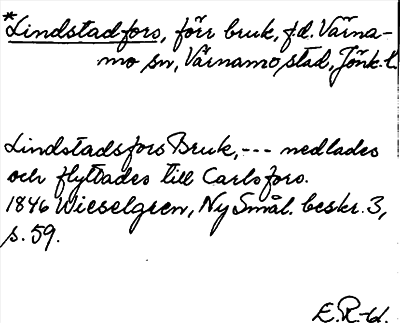 *Lindstadfors, förr bruk, f.d. Värna-
mo sn, Värnamo stad, Jönk. l.
Lindstadsfors Bruk, --- nedlades
och flyttades till Carlsfors.
1846 Wieselgren, Ny Smål. beskr. 3,
s. 59.
E. R-d.